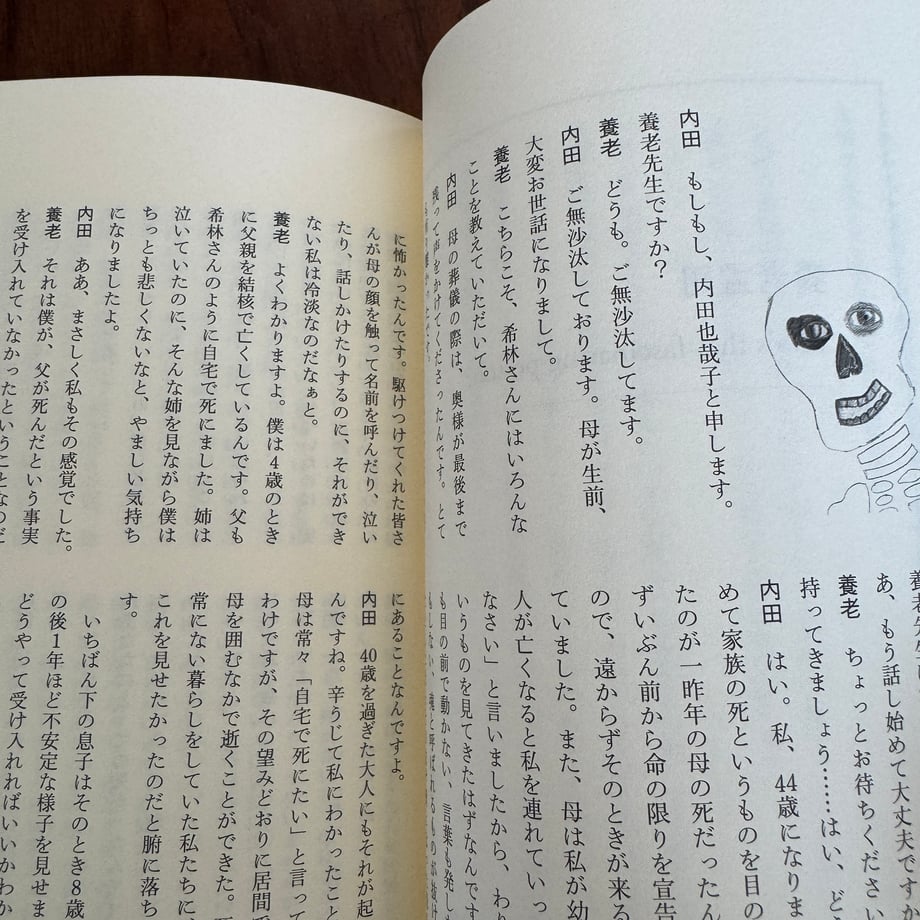 内田　もしもし、内田也哉子と申します。
養老先生ですか？
養老　どうも。ご無沙汰してます。
内田　ご無沙汰しております。母が生前、
大変お世話になりまして。
養老　こちらこそ、希林さんにはいろんな
ことを教えていただいて。
内田　母の葬儀の際は、奥様が最後まで
残って声をかけてくださったんです。とて
養老先生
あ、もう話し始めて大丈夫ですか
養老　ちょっとお待ちください
持ってきましょう……はい、ど
内田　はい。私、44歳になりま
めて家族の死というものを目の
たのが一昨年の母の死だったん
ずいぶん前から命の限りを宣告
ので、遠からずそのときが来る
ていました。また、母は私が幼
人が亡くなると私を連れていっ
なさい」と言いましたから、わり
いうものを見てきたはずなんです
も目の前で動かない、言葉も発し
もしない、魂と呼ばれるものが抜け
に怖かったんです。駆けつけてくれた皆さ
んが母の顔を触って名前を呼んだり、泣い
たり、話しかけたりするのに、それができ
ない私は冷淡なのだなぁと。
養老　よくわかりますよ。僕は4歳のとき
に父親を結核で亡くしているんです。父も
希林さんのように自宅で死にました。姉は
泣いていたのに、そんな姉を見ながら僕は
ちっとも悲しくないなと、やましい気持ち
になりましたよ。
内田　ああ、まさしく私もその感覚でした。
養老　それは僕が、父が死んだという事実
を受け入れていなかったということなのだ
にあることなんですよ。
内田　40歳を過ぎた大人にもそれが起
んですね。辛うじて私にわかったこと
母は常々「自宅で死にたい」と言って
わけですが、その望みどおりに居間
母を囲むなかで逝くことができた。
常にない暮らしをしていた私たちに
これを見せたかったのだと腑に落ち
す。
いちばん下の息子はそのとき8歳
の後1年ほど不安定な様子を見せま
どうやって受け入れればいいかわか